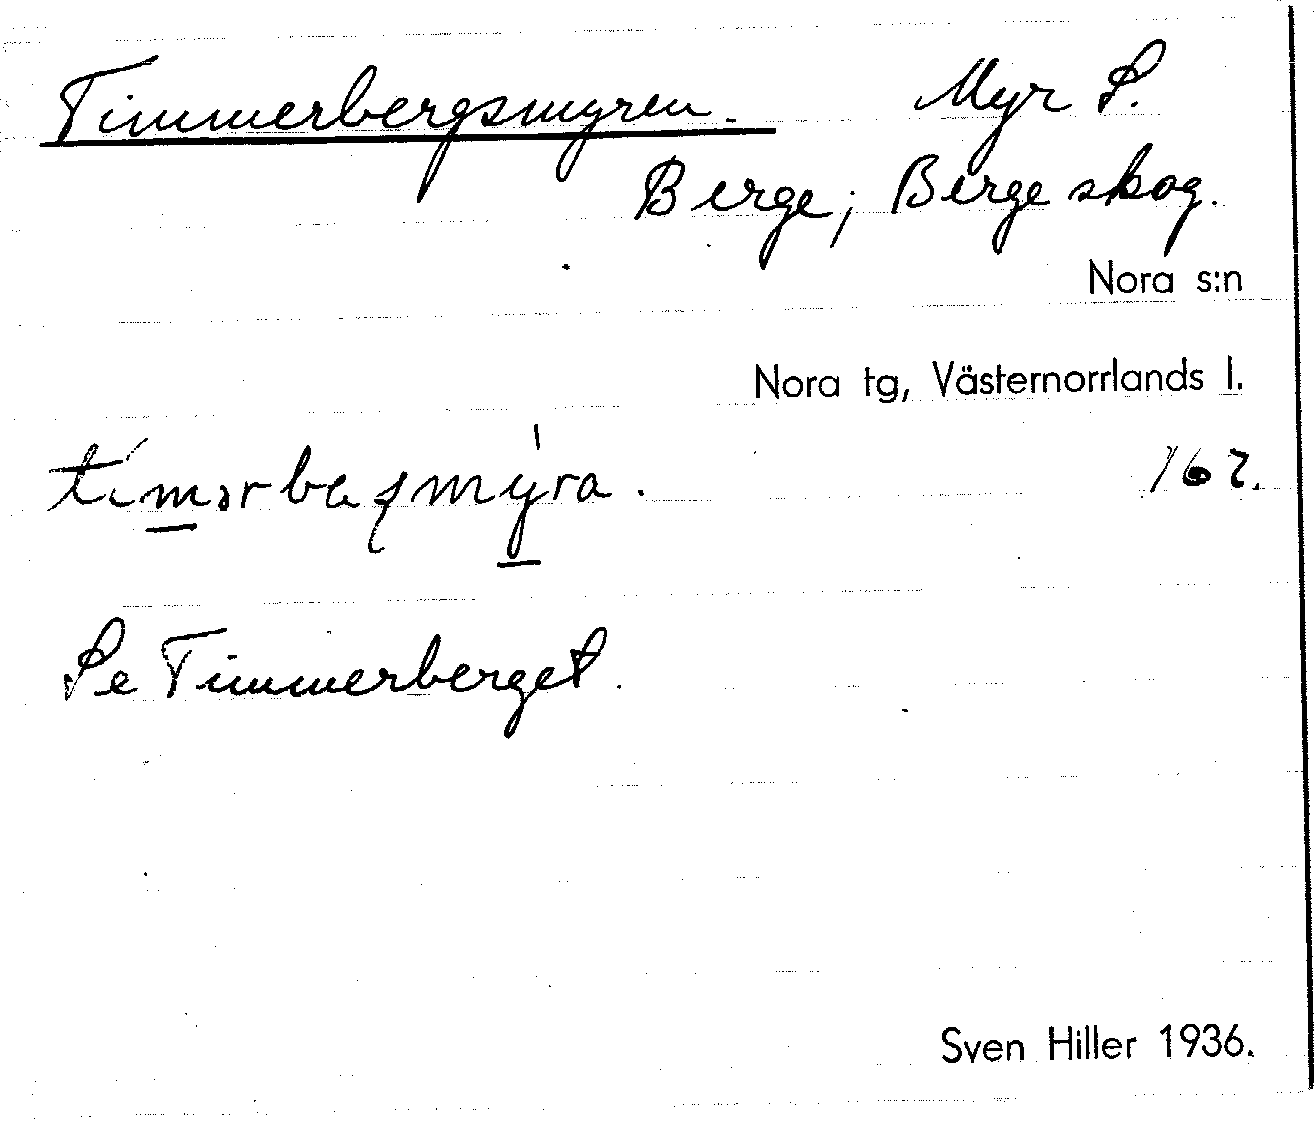 Timmerbergsmyren. Myr S.
Berge; Berge skog.
Nora s:n
Nora tg, Västernorrlands l.
162.
Se Timmerberget.
Sven Hiller 1936.